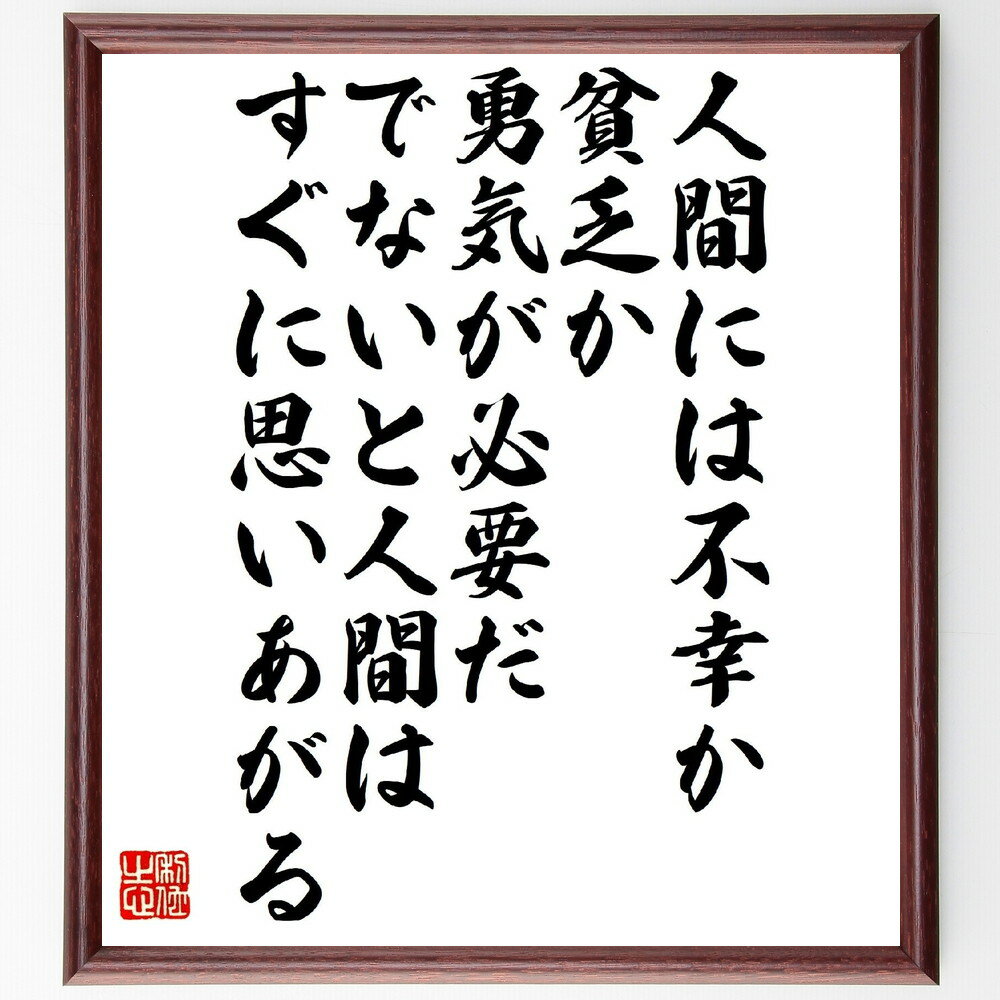 人間には不幸か
貧乏か
勇気が必要だ
でないと人間は
すぐに思いあがる